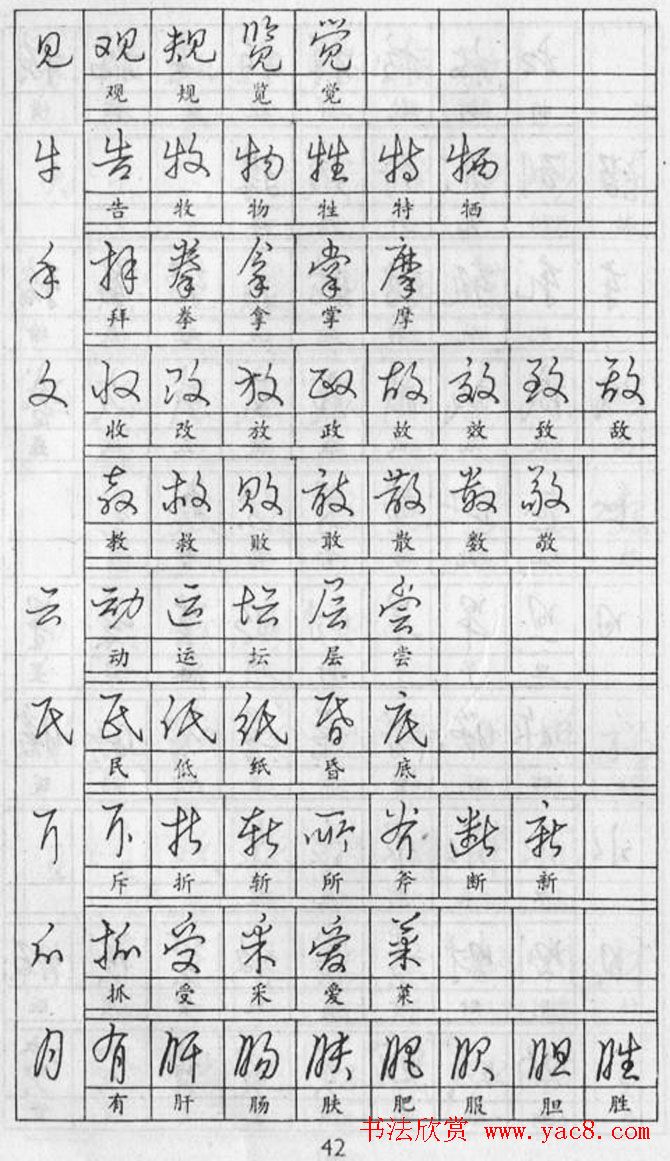 见 观 规 览 觉
观 规 览 觉
牛 告 牧 物 牲 特 牺
告 牧 物 牲 特 牺
手 拜 拳 拿 掌 摩
拜 拳 拿 掌 摩
攵 收 改 放 政 故 效 致 敌
收 改 放 政 故 效 致 敌
教 救 败 敢 散 数 敬
教 救 败 敢 散 数 敬
云 动 运 坛 层 尝
动 运 坛 层 尝
氏 民 低 纸 昏 底
民 低 纸 昏 底
斤 斥 折 斩 所 斧 断 新
斥 折 斩 所 斧 断 新
爪 抓 受 采 爱 菜
抓 受 采 爱 菜
月 有 肝 肠 肤 肥 服 胆 胜
有 肝 肠 肤 肥 服 胆 胜
42
书法欣赏 www.yac8.com